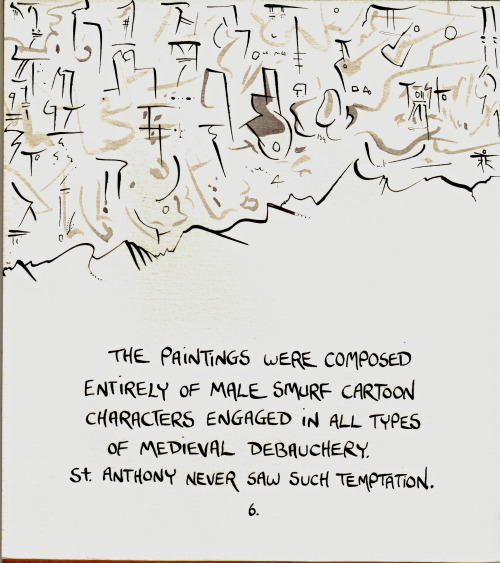 THE PAINTINGS WERE COMPOSED
ENTIRELY OF MALE SMURF CARTOON
CHARACTERS ENGAGED IN ALL TYPES
OF MEDIEVAL DEBAUCHERY.
St. ANTHONY NEVER SAW SUCH TEMPTATION.
6.